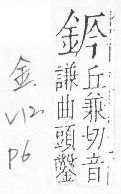 鈐丘兼切音
謙曲頭鑿
金
V12
P6